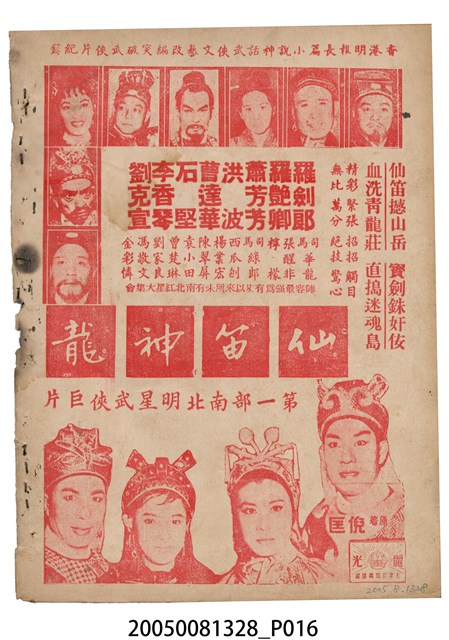 香港明報長篇小說神話武俠文藝改編突破武俠片紀錄
仙笛撼山岳 寶劍銖奸佞
血洗青龍莊 直搗迷魂島
精彩緊張 招招觸目
無比萬分 絕技驚心
羅劍郎
羅艷卿
蕭芳芳
洪波
曹達華
石堅
李香琴
劉克宣
司馬華龍
張醒非
檸檬
司馬綠郎
西瓜刨
楊業宏
陳翠屏
袁小田
曾楚琳
劉家良
馮敬文
金彩
陣容最強為有史以來所未有南北紅星大集會
仙笛神龍
第一部南北明星武俠巨片
原著 倪匡
麗光
2005.8.1328
20050081328_P016